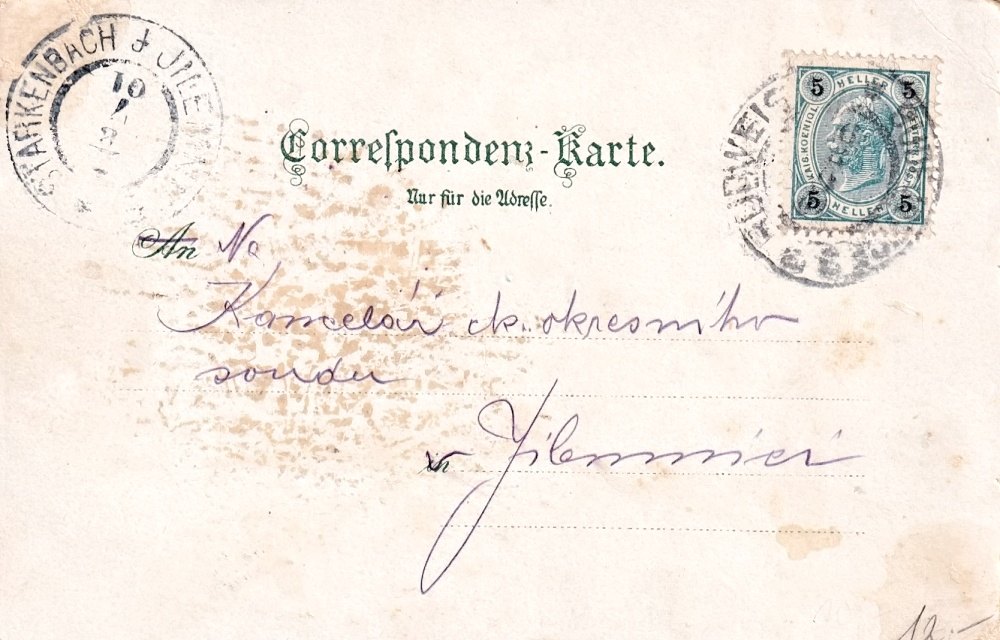 STARKENBACH
10
Correspondenz-Karte.
Nur für die Adresse.
5 HELLER 5
KAIS. KOENIGL.
5 HELLER 5
RUDWEIS
An Na
Kancelář ck. okresního
soudu
v Jilemnici
12.-